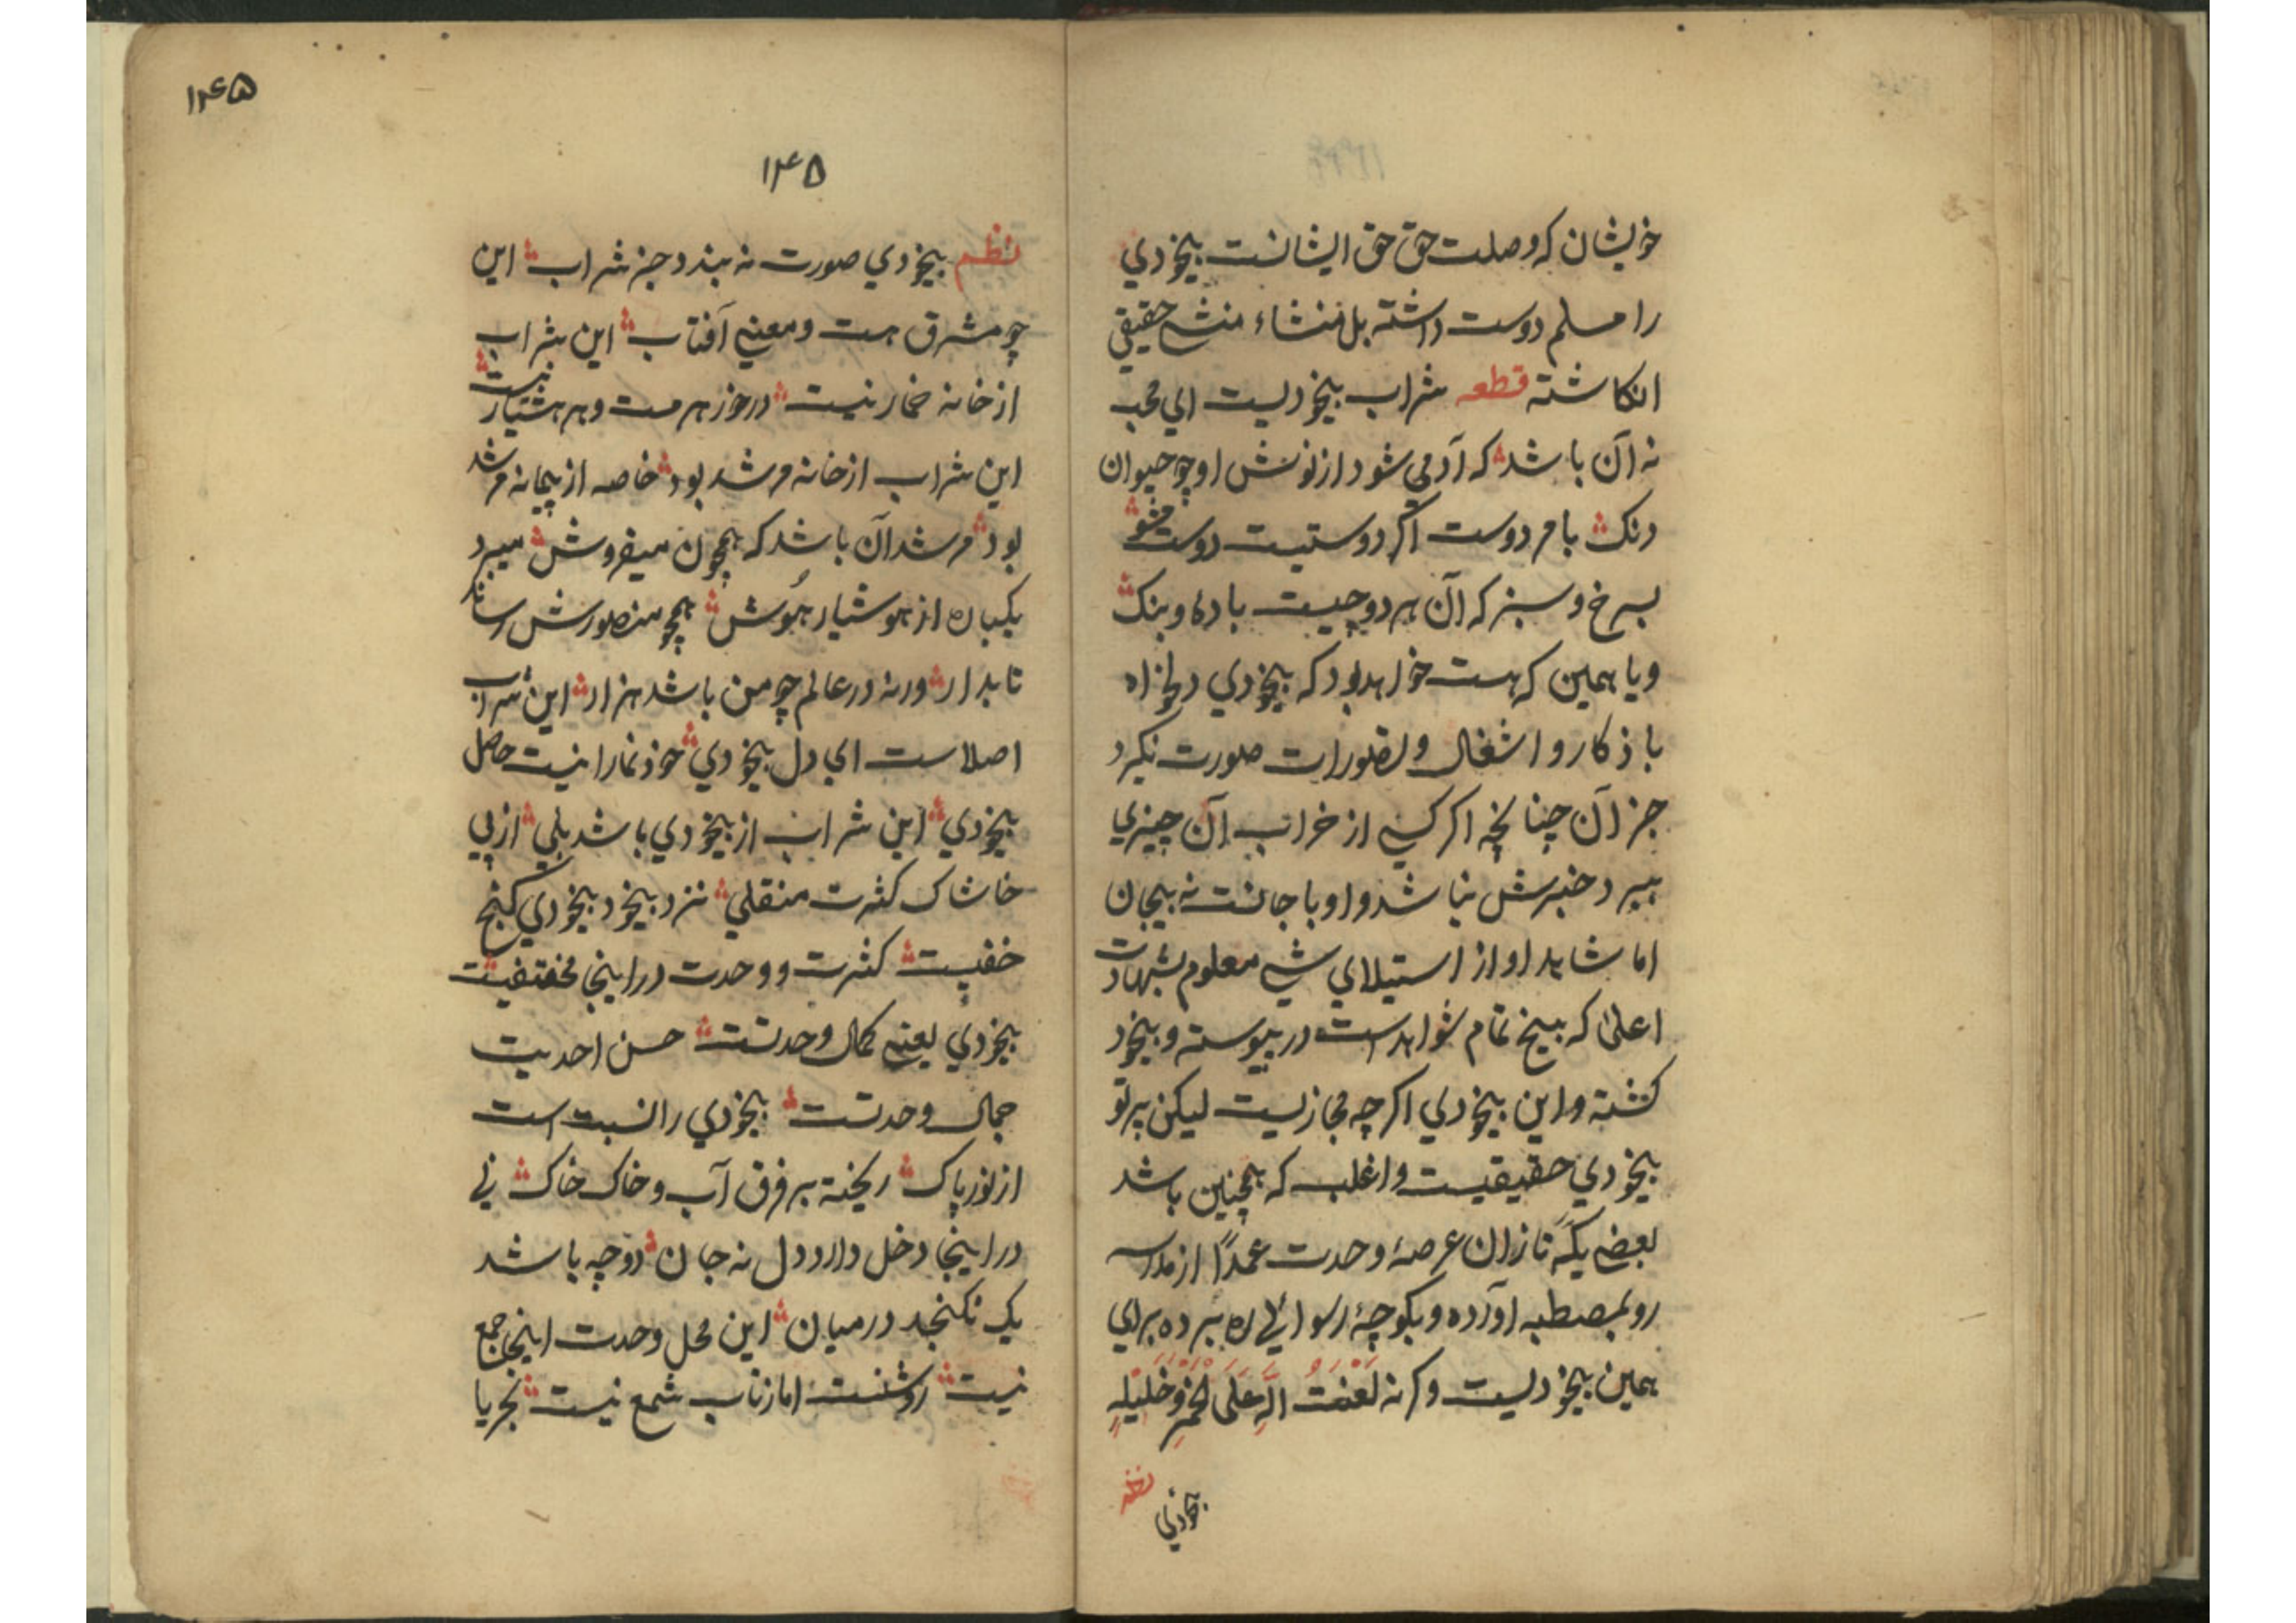 خویشان که وصلت حق حق ایشانست بیخودي
را مسلم دوست داشته بل منشاء منشی حقیقی
انکاشته قطعه شراب بیخودیست اي محب
نه آن باشد که آدمی شود از نوشش او چو حیوان
دنک با مر دوست اگر دوستیت دوست مشو
بسرخ و سبز که آن هر دو چیست باده و بنک
ویا همین که هست خواهد بود که بیخودي دلخواه
باذکار و اشغال و تصورات صورت نکیرد
جز آن چنانچه اکر کسی از خراب آن چیزي
ببرد خبرش نباشد و او با جانست نه بیجان
اما شاید او از استیلاي شی معلوم بشهادت
اعلیٰ که بیخ تمام شواهد است در پیوسته و بیخود
کشته و این بیخودي اکرچه مجازیست لیکن پرتو
بیخودي حقیقیست و اغلب که همچنین باشد
بعضی یکه تازان عرصۀ وحدت عمدًا از مدرسه
رو بمصطبه آورده و بکوچۀ رسوائی ره برده براي
همین بیخودیست وکرنه لعنت اللّه علی الخمر و خلیله
نظم
بیخودي
۱۴۵
۱۴۵
نظم بیخودي صورت نه بندد جز شراب این
چو مشرق هست و معنی آفتاب این شراب
از خانه خمار نیست درخور هر مست و هر هشیار نیست
این شراب از خانه مرشد بود خاصه از پیمانه مرشد
بود مرشد آن باشد که همچون میفروش میبرد
یکباره از هوشیار هُوش همچو منصورش رساند
تا بدار ورنه در عالم چو من باشد هزار این شراب
اصلاست اي دل بیخودي خودنما را نیست حاصل
بیخودي این شراب از بیخودي باشد بلی از پی
خاشاک کثرت منقلی نزد بیخود بیخودي کنج
خفیست کثرت و وحدت در اینجا مختفیست
بیخودي یعنی کمال وحدتست حسن احدیت
جمال وحدتست بیخودي را نسبت است
از نور پاک ریخته بر فرق آب و خاک خاک نی
در اینجا دخل دارد دل نه جان دو چه باشد
یک نکنجد در میان این محل وحدت اینجا جمع
نیست روشنست اما ز تاب شمع نیست بحر یا